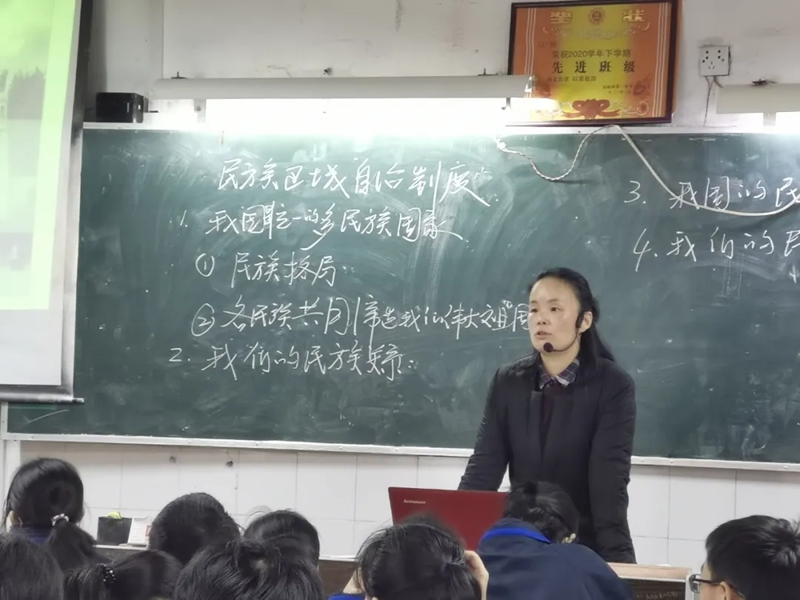 奖 状
荣获2020学年下学期
先进班级
民族区域自治制度
1. 我国是统一的多民族国家
① 民族格局
② 各民族共同缔造我们伟大祖国
2. 我们的民族关系
3. 我国的民
4. 我们的民
Lenovo